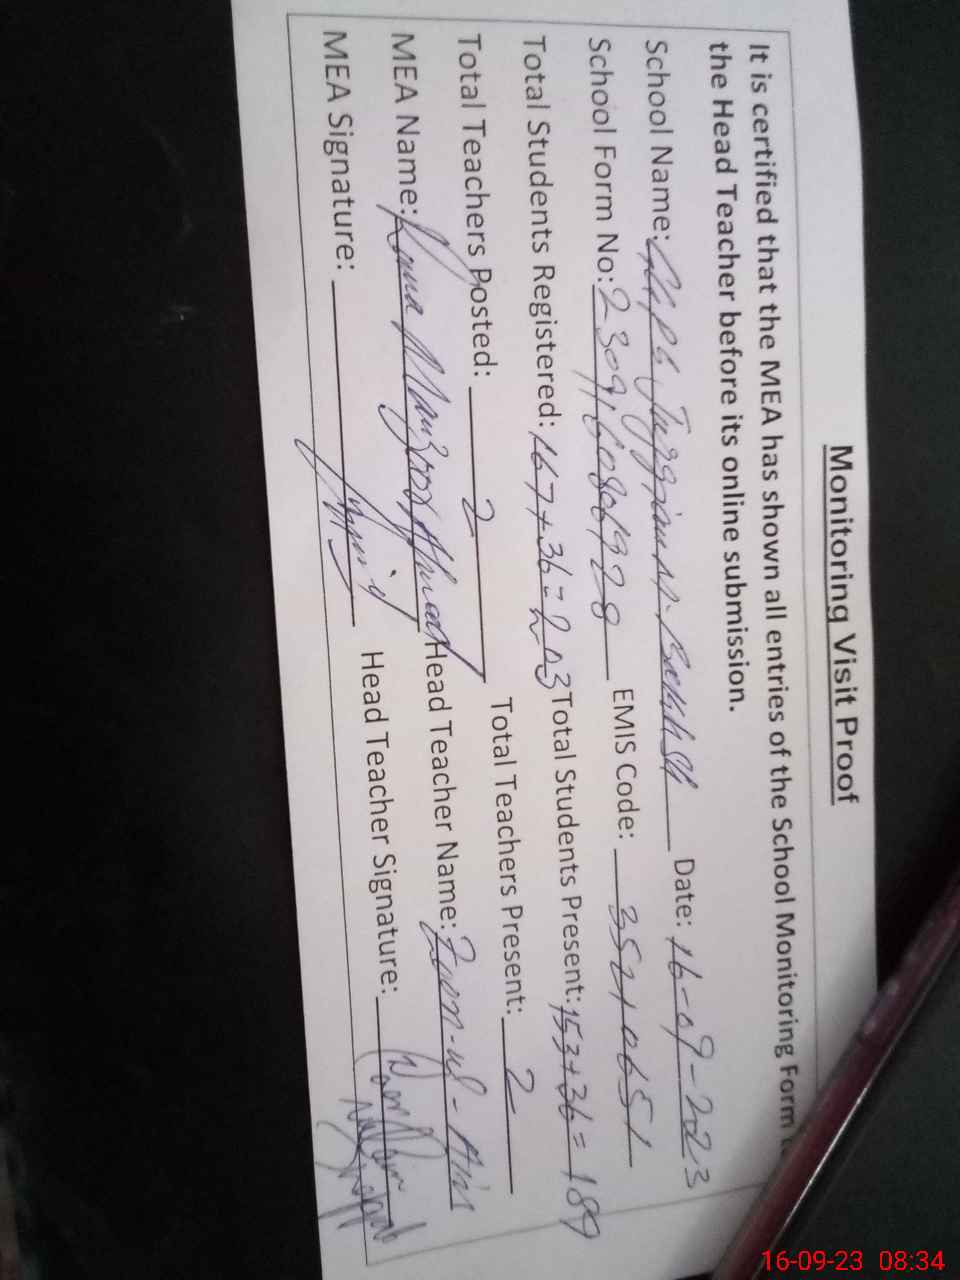 Monitoring Visit Proof
It is certified that the MEA has shown all entries of the School Monitoring Form
the Head Teacher before its online submission.
School Name: Date: 16-09-2023
School Form No: EMIS Code: 35210651
Total Students Registered: 167+36=203 Total Students Present: 153+36=189
Total Teachers Posted: 2 Total Teachers Present: 2
MEA Name: Rana Manzoor Ahmad Head Teacher Name:
MEA Signature: Head Teacher Signature:
16-09-23 08:34